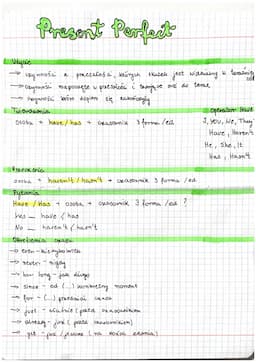 Present Perfect
Użycie
→ czynności z przeszłości, których skutek jest widoczny w teraźniejszości
→ czynności rozpoczęte w przeszłości i trwające aż do teraz
→ czynności które dopiero się zakończyły
Tworzenie operator have
osoba + have/has + czasownik 3 forma/ed I, You, We, They
Have, Haven't
He, She, It
Has, Hasn't
osoba + haven't/hasn't + czasownik 3 forma/ed
Pytania
Have/Has + osoba + czasownik 3 forma/ed ?
Yes _ have/has
No _ haven't/hasn't
Określenia czasu
→ ever -
→ never - nigdy
→ how long - jak długo
→ since - od (...) konkretny moment
→ for - (...) przedział czasu
→ just - właśnie (przed czasownikiem)
→ already - już (przed czasownikiem)
→ yet - już/jeszcze (na końcu zdania)